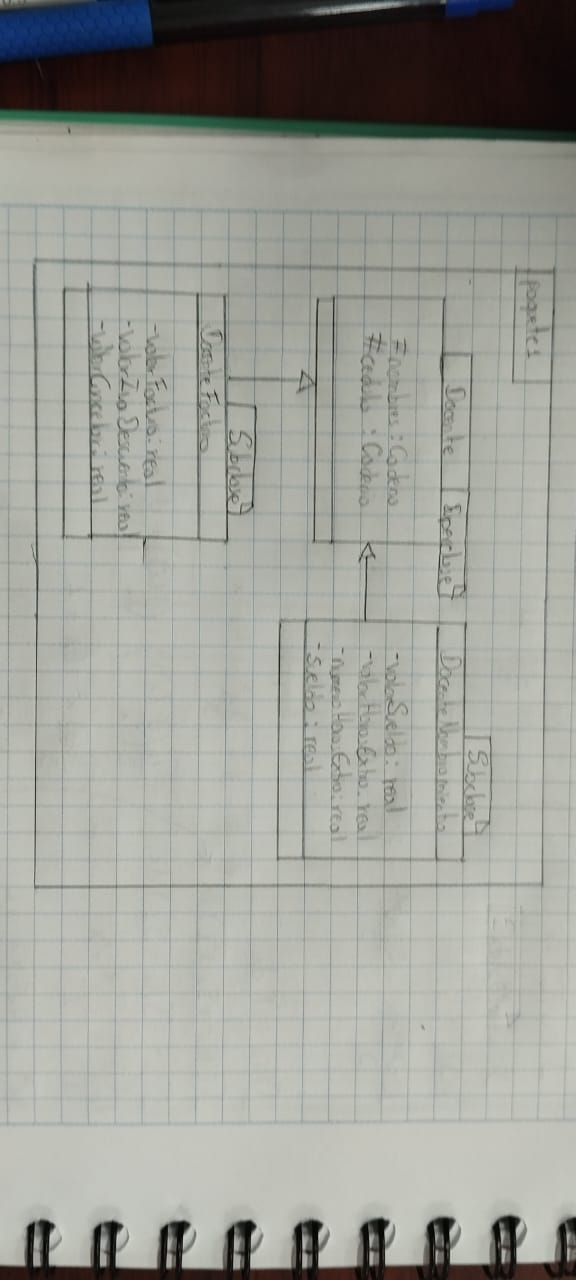 paquete1
Docente
Superclase
#nombres: Cadena
#cedula: Cadena
Subclase
DocenteNombramiento
-valorSueldo: real
-valorHorasExtra: real
-numeroHorasExtra: real
-sueldo: real
Subclase
DocenteFactura
-valorFactura: real
-valorIvaDescuento: real
-valorCancelar: real